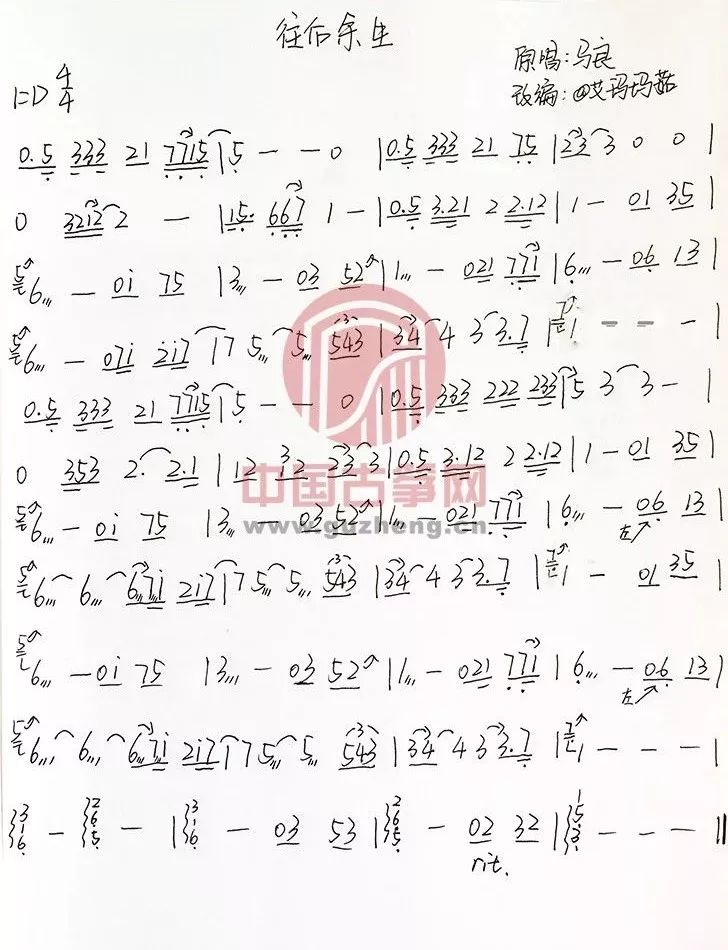 往后余生
原唱:马良
1=D 4/4
改编:@艾玛玛菇
0.5 333 21 7715 | 5 - - 0 | 0.5 333 21 75 | 23 3 0 0 |
0 3212 2 - | 15. 667 1 - | 0.5 3.21 2 2.12 | 1 - 01 35 |
5 6,,, - 0i 75 | 3,,, - 03 52 | 1,,, - 021 771 | 6,,, - 06 13 |
5 6,,, - 07i 2i7 | 7 5,,, 5,,, 543 | 34 4 3 3.7 | 7 1 - - - |
0.5 333 21 7715 | 5 - - 0 | 0.5 333 222 233 | 5 3 3 - |
0 353 2. 2.1 | 12 32 23 3 | 0.5 3.12 2 2.12 | 1 - 01 35 |
中国古筝网
5 6,,, - 0i 75 | 3,,, - 03 52 | 1,,, - 021 771 | 6,,, - 06 13 |
www.guzheng.cn
左
5 6,,, 6,,, 67i 2i7 | 7 5,,, 5,,, 543 | 34 4 3 3.7 | 7 1 - 01 35 |
5 6,,, - 0i 75 | 3,,, - 03 52 | 1,,, - 021 771 | 6,,, - 06 13 |
左
5 6,,, 6,,, 67i 2i7 | 7 5,,, 5,,, 543 | 34 4 3 3.7 | 7 1 - - - |
316 - 265 - | 316 - 03 53 | 265 - 02 32 | 153 - - - ||
rit.